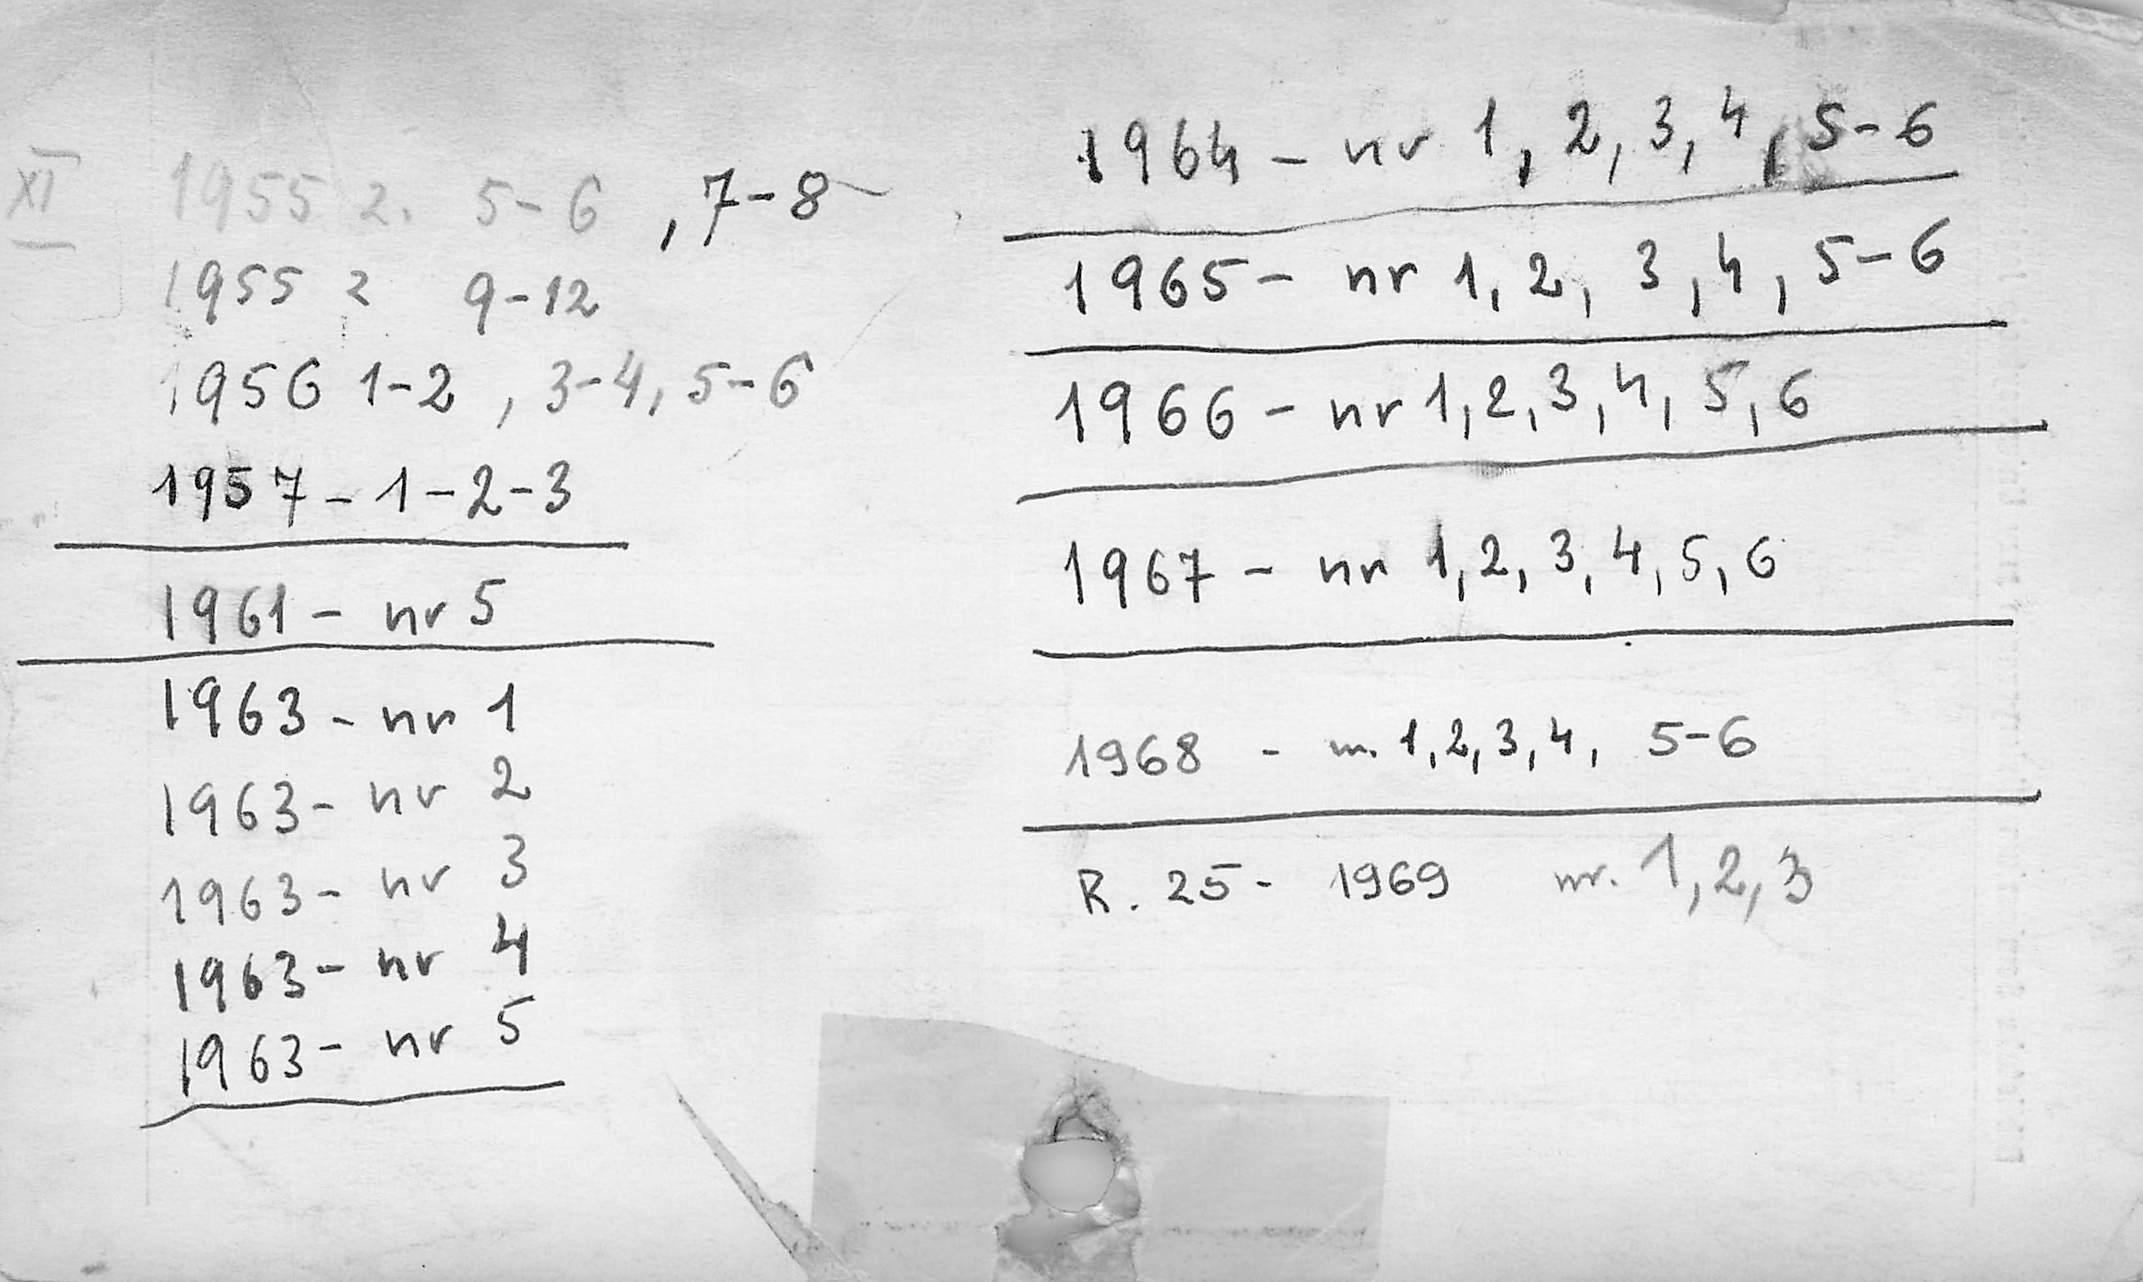 XI 1955 z. 5-6, 7-8
1955 z 9-12
1956 1-2, 3-4, 5-6
1957 - 1-2-3
1961 - nr 5
1963 - nr 1
1963 - nr 2
1963 - nr 3
1963 - nr 4
1963 - nr 5
1964 - nr 1, 2, 3, 4, 5-6
1965 - nr 1, 2, 3, 4, 5-6
1966 - nr 1, 2, 3, 4, 5, 6
1967 - nr 1, 2, 3, 4, 5, 6
1968 - nr. 1, 2, 3, 4, 5-6
R. 25 - 1969 nr. 1, 2, 3